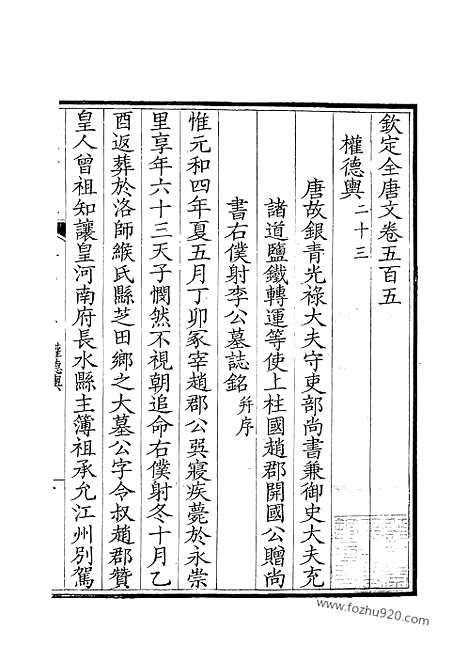 欽定全唐文卷五百五
權德輿二十三
唐故銀青光祿大夫守吏部尚書兼御史大夫充
諸道鹽鐵轉運等使上柱國趙郡開國公贈尚
書右僕射李公墓誌銘并序
惟元和四年夏五月丁卯冢宰趙郡公巽寢疾薨於永崇
里享年六十三天子憫然不視朝追命右僕射冬十月乙
酉返葬於洛師緱氏縣芝田鄉之大墓公字令叔趙郡贊
皇人曾祖知讓皇河南府長水縣主簿祖承允江州別駕
權德輿
www.fozhu920.com